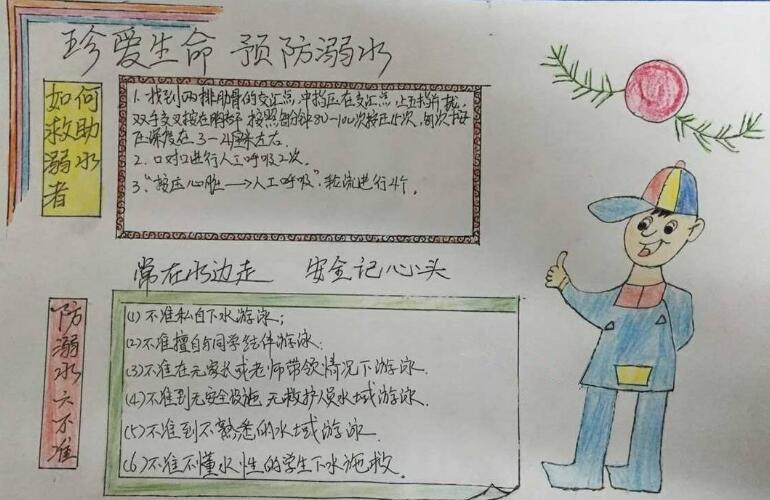 珍爱生命 预防溺水
如何
救助
溺水
者
1. 找到两排肋骨的交汇点,中指压在交汇点 上
双手交叉按在胸部 按照每分钟80-100次按压15次,每次按
压深度在 3-4厘米左右.
2. 口对口进行人工呼吸2次.
3. "按压心脏→人工呼吸",轮流进行4个.
常在水边走 安全记心头
防溺水六不准
(1) 不准私自下水游泳;
(2) 不准擅自与同学结伴游泳:
(3) 不准在无家长或老师带领情况下游泳.
(4) 不准到无安全设施 无救护人员水域游泳.
(5) 不准到不熟悉的水域游泳.
(6) 不准不懂水性的学生下水施救.